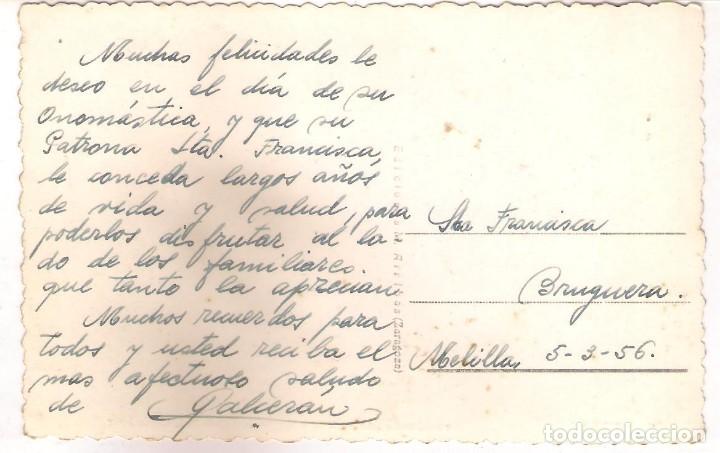 Muchas felicidades le
deseo en el día de su
Onomástica, y que su
Patrona Sta. Francisca,
le conceda largos años
de vida y salud, para
poderlos disfrutar al la
do de los familiares.
que tanto la aprecian
Muchos recuerdos para
todos y usted reciba el
mas afectuoso saludo
de Galcerán
(Zaragoza)
Sta Francisca
Bruguera.
Melilla, 5-3-56.
todocoleccion.net